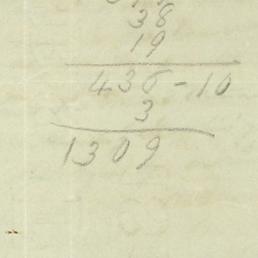 38
19
436-10
3
1309